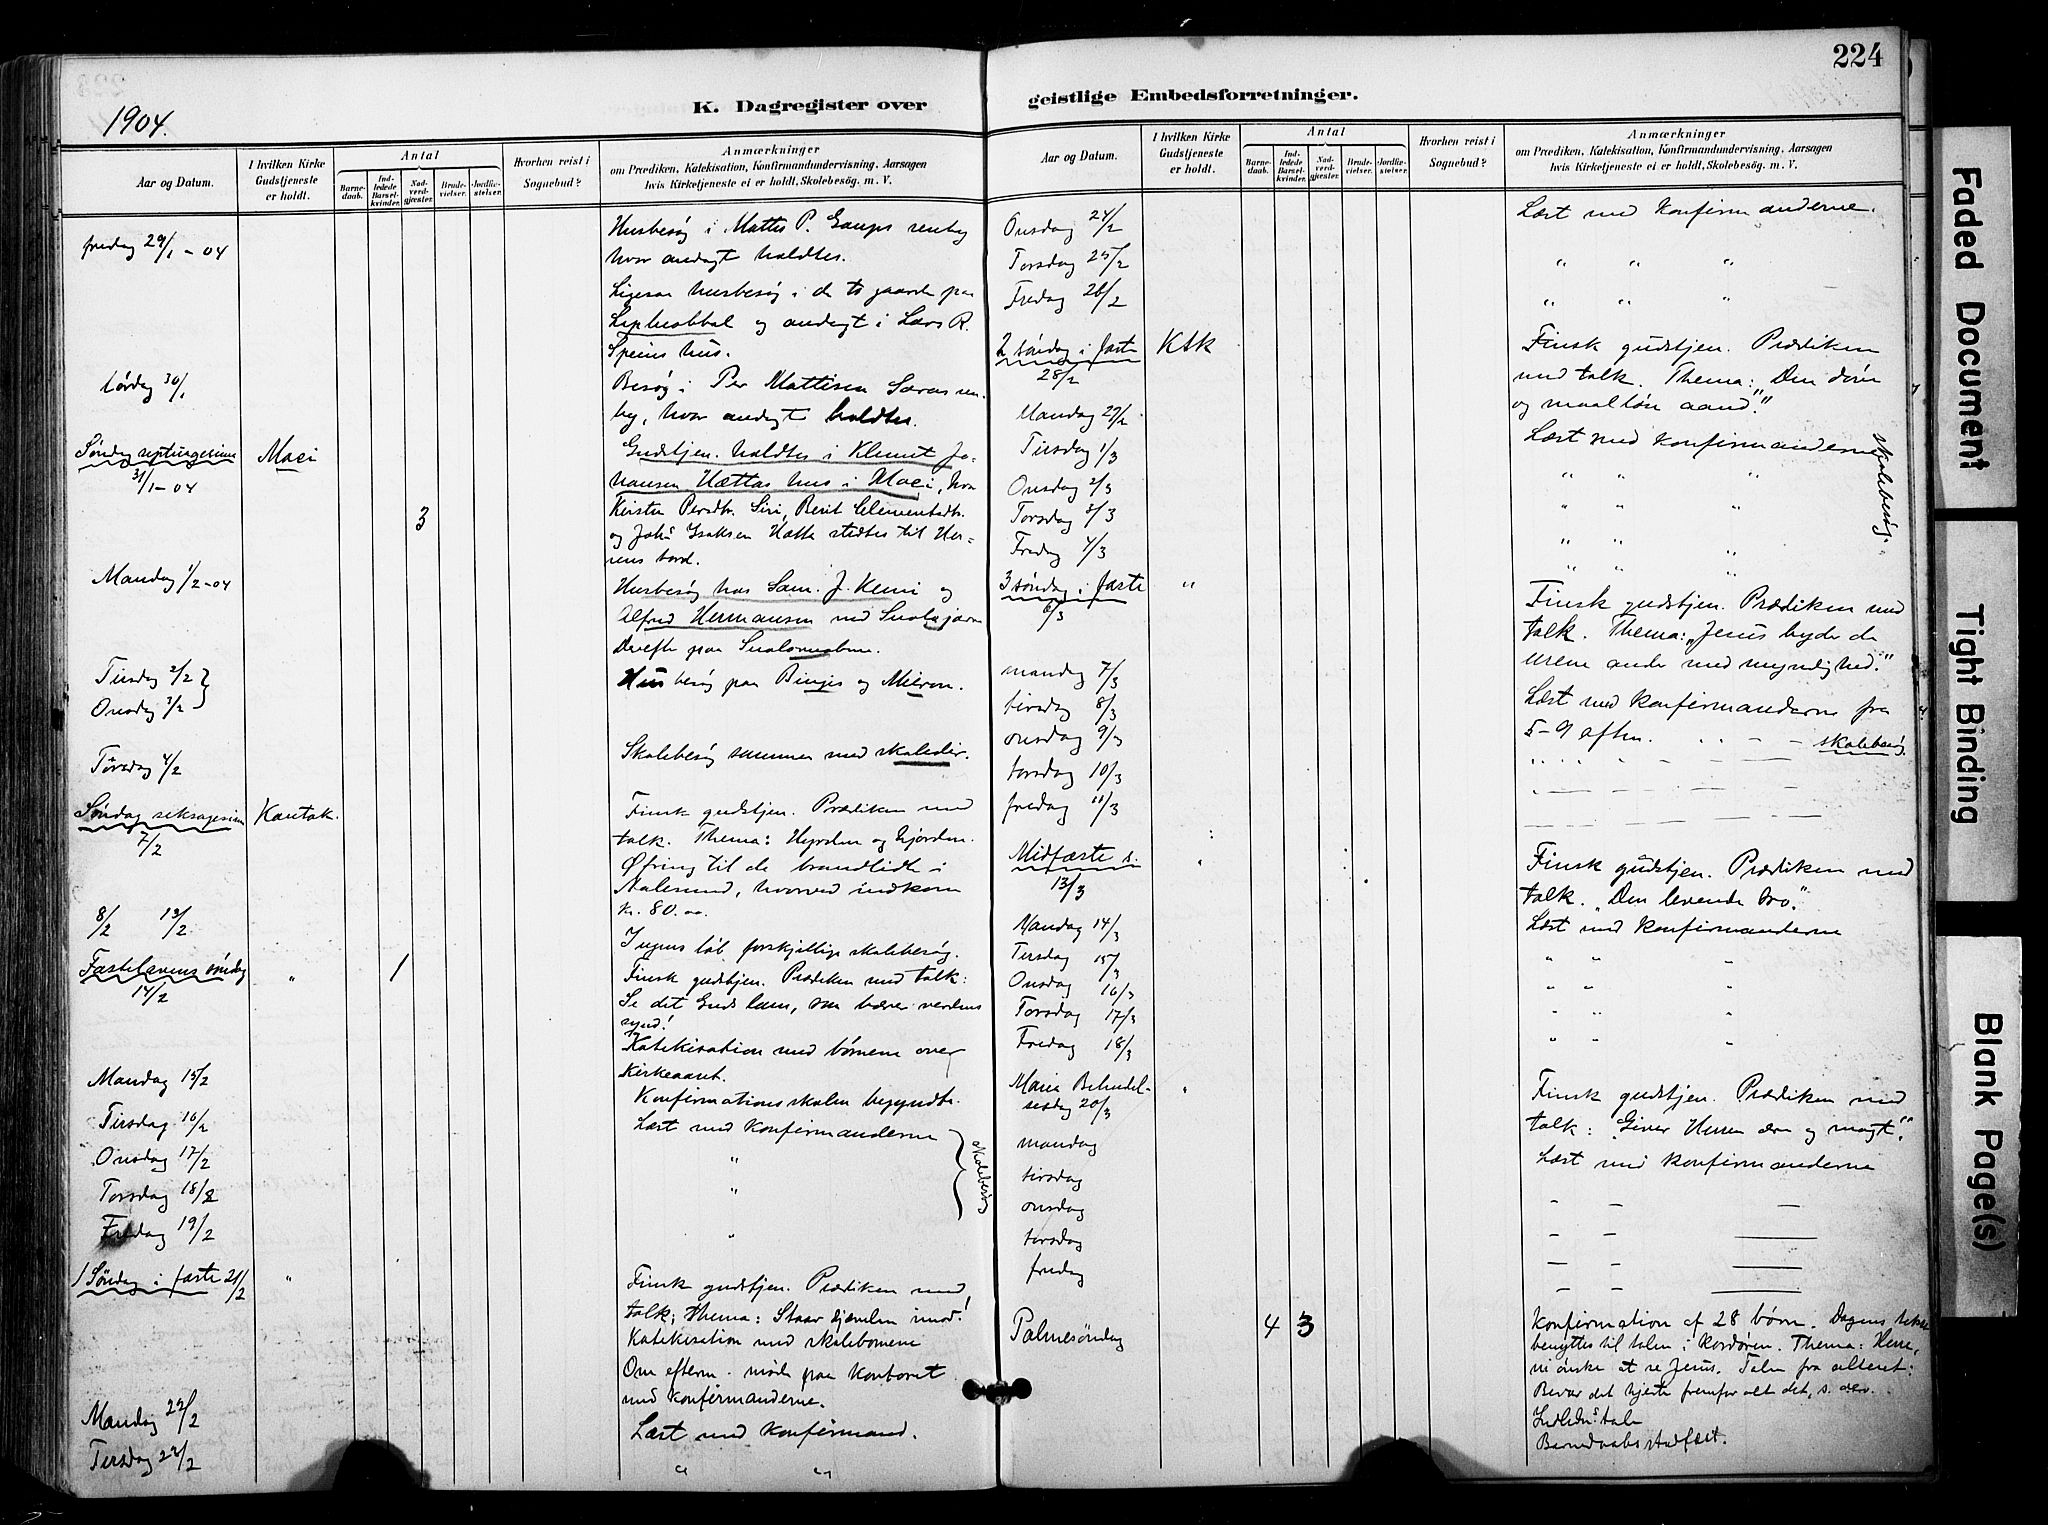 224
K. Dagregister over
geistlige Embedsforretninger.
1904.
Aar og Datum.
I hvilken Kirke Gudstjeneste er holdt.
Antal
Barnedaab.
Indledede Barselkvinder.
Nadverdgjester.
Brudevielser.
Jordfæstelser.
Hvorhen reist i Sognebud?
Anmærkninger
om Prædiken, Katekisation, Konfirmandundervisning, Aarsagen
hvis Kirketjeneste ei er holdt, Skolebesøg. m. V.
fredag 29/1 - 04
Husbesøg i Mattes P. Gaups renby
hvor andagt holdtes.
Ligesaa husbesøg i de to gaarde paa
og andagt i Lars R.
hus.
Lørdag 30/1
Besøg i Per Mattisen Saras ren-
by, hvor andagt holdtes.
Søndag septuagesima
31/1-04
Maci
3
Gudstjen. holdtes i Klemet Jo-
hansen Hættas hus i Maci, hvor
Kirsten Persdtr. Siri, Berit Clementsdtr.
og Joh. Isaksen Hætta stedtes til Her-
rens bord.
Mandag 1/2-04
Husbesøg hos Sam. J. Kemi og
Alfred Hermansen ved
Derefter paa
Tirsdag 2/2
Onsdag 3/2
Husbesøg paa og Mieron.
Torsdag 4/2
Skolebesøg sammen med skoledir.
Søndag seksagesima
7/2
Kautok.
Finsk gudstjen. Prædiken med
talk. Thema: Hyrden og hjorden.
Ofring til de brandlidte i
Aalesund, hvorved indkom
kr. 80.00.
8/2 13/2
I ugens løb forskjellige skolebesøg.
Fastelavens søndag
14/2
"
1
Finsk gudstjen. Prædiken med talk:
Se det Guds lam, som bærer verdens
synd!
Katekisation med børnene over
kirkeaaret.
Mandag 15/2
Konfirmationsskolen begyndte.
Tirsdag 16/2
Læst med konfirmanderne
Onsdag 17/2
"
Torsdag 18/2
"
Fredag 19/2
"
skolebesøg
1 Søndag i faste 21/2
"
Finsk gudstjen. Prædiken med
talk; thema: Staar djævelen imod!
Katekisation med skolebørnene
Om efterm. møde paa kontoret
med konfirmanderne.
Mandag 22/2
Læst med konfirmand.
Tirsdag 23/2
" "
Aar og Datum.
I hvilken Kirke Gudstjeneste er holdt.
Antal
Barnedaab.
Indledede Barselkvinder.
Nadverdgjester.
Brudevielser.
Jordfæstelser.
Hvorhen reist i Sognebud?
Anmærkninger
om Prædiken, Katekisation, Konfirmandundervisning, Aarsagen
hvis Kirketjeneste ei er holdt, Skolebesøg. m. V.
Onsdag 24/2
Læst med konfirmanderne.
Torsdag 25/2
" " "
Fredag 26/2
" " "
2 søndag i faste
28/2
Ktk
Finsk gudstjen. Prædiken
med talk. Thema: "Den døve
og maalløse aand".
Mandag 29/2
Læst med konfirmanderne
Tirsdag 1/3
" " "
Onsdag 2/3
" " "
Torsdag 3/3
" " "
Fredag 4/3
skolebesøg.
3 søndag i faste
6/3
"
Finsk gudstjen. Prædiken med
talk. Thema: "Jesus byder de
urene aander med myndighed."
mandag 7/3
Læst med konfirmanderne fra
tirsdag 8/3
5-9 efterm. skolebesøg
onsdag 9/3
torsdag 10/3
fredag 11/3
Midfaste s.
13/3
"
Finsk gudstjen. Prædiken med
talk. "Den levende tro."
Mandag 14/3
Læst med konfirmanderne
Tirsdag 15/3
" " "
Onsdag 16/3
" " "
Torsdag 17/3
" " "
Fredag 18/3
" " "
Maria Bebudel-
sesdag 20/3
"
Finsk gudstjen. Prædiken med
talk: "Giver Herren ære og magt".
mandag
Læst med konfirmanderne
tirsdag
onsdag
torsdag
fredag
Palmesøndag
4 3
Konfirmation af 28 børn. Dagens tekst
benyttes til talen i kordøren. Thema: Herre,
vi ønske at se Jesus. Talen fra alteret:
Bevar det hjerte fremfor alt det, s.
tale
Barnedaabs
Faded Document
Tight Binding
Blank Page(s)